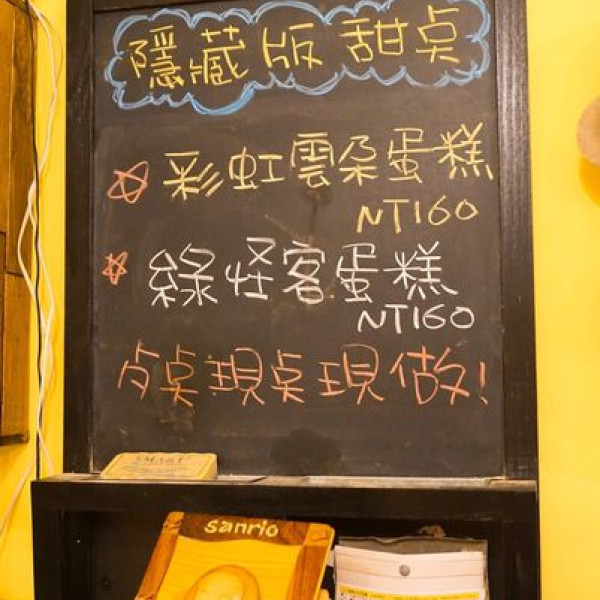 隱藏版甜奌
彩虹雲朵蛋糕
NT160
綠怪客蛋糕
NT160
歺奌現奌現做!
SMART
sanrio